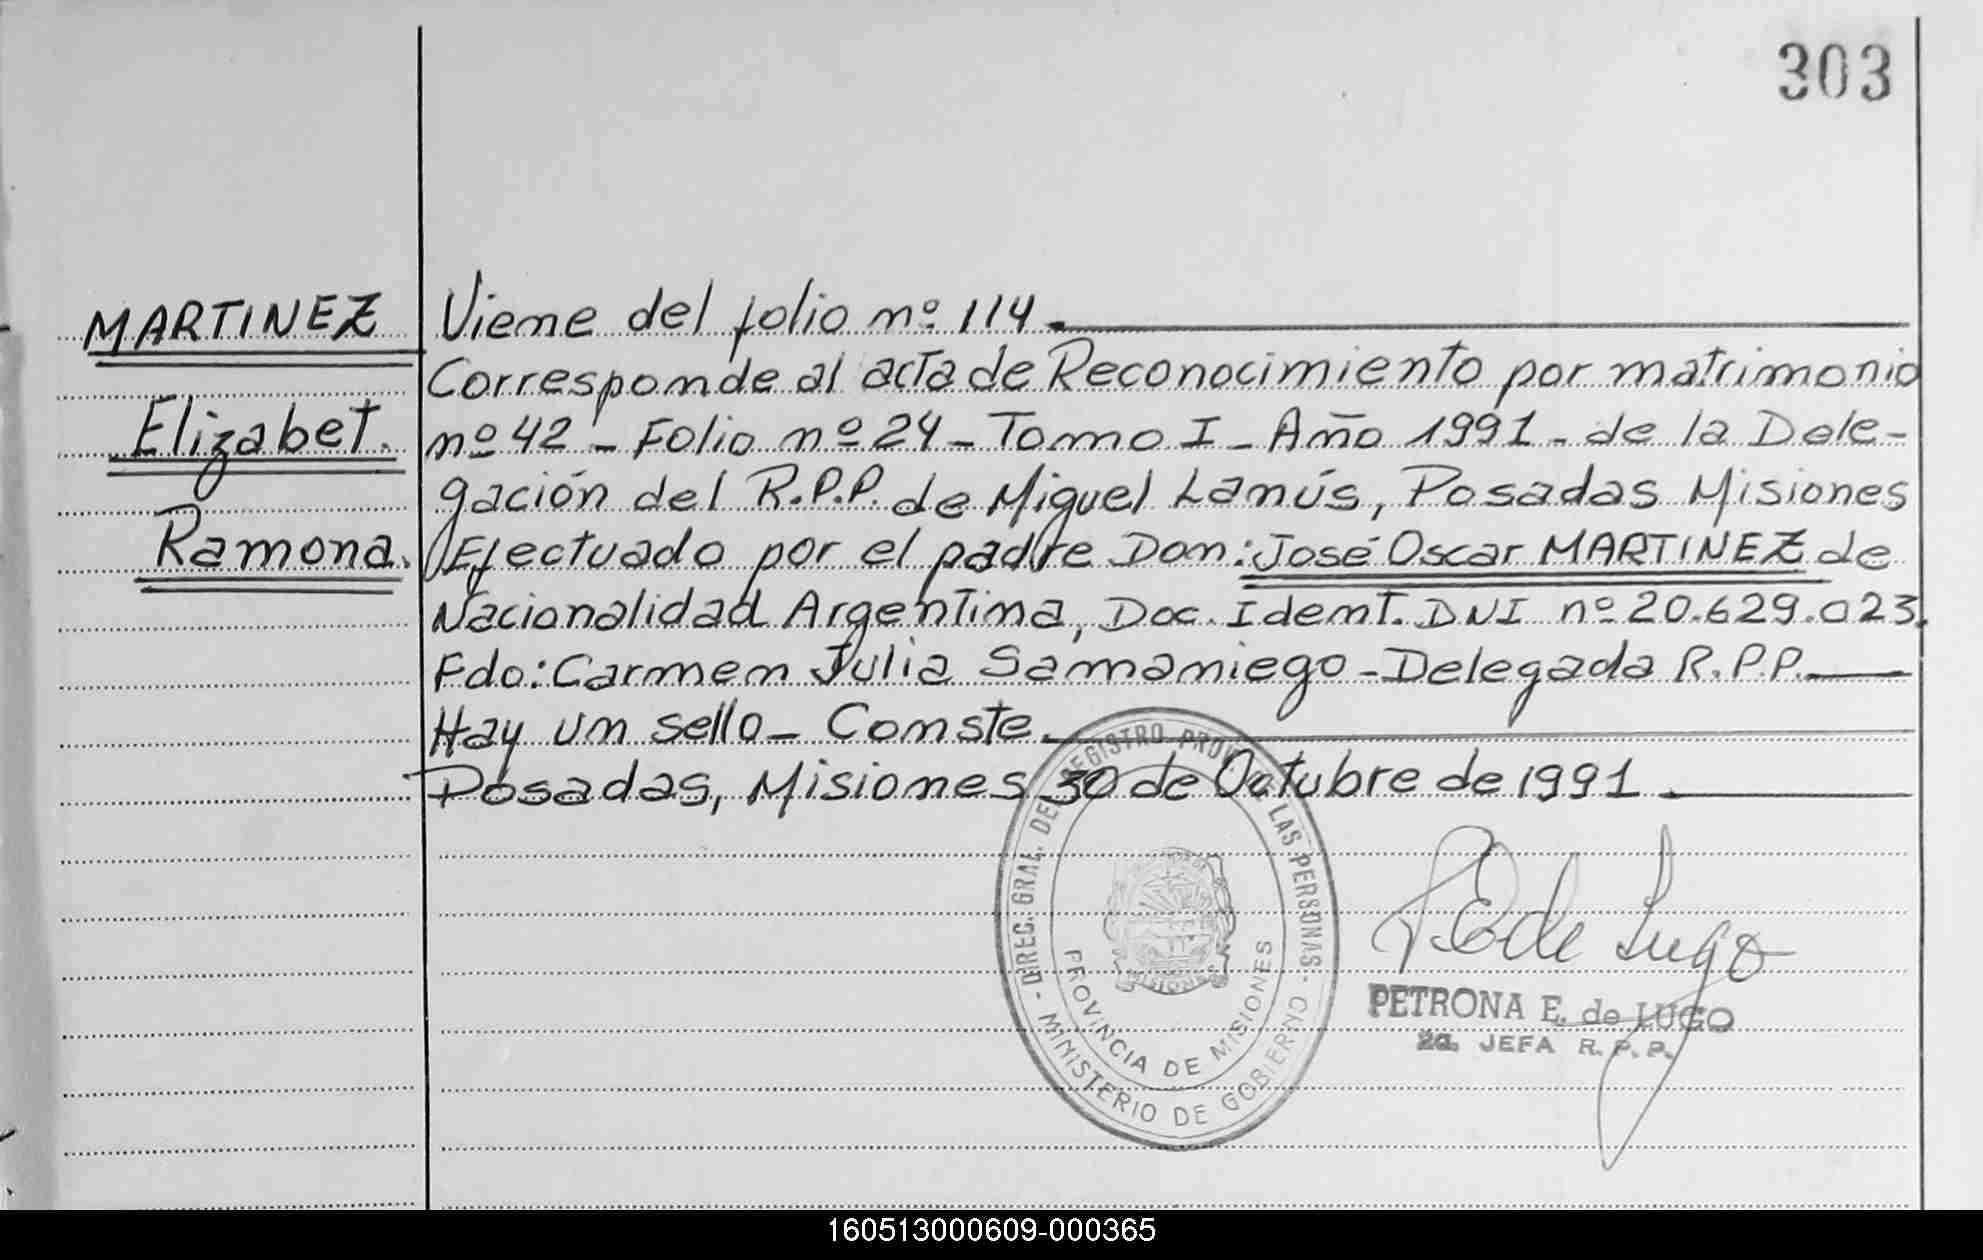 303
MARTINEZ
Elizabet.
Ramona.
Viene del folio nº 114.
Corresponde al acta de Reconocimiento por matrimonio
nº 42 - Folio nº 24 - Tomo I - Año 1991 - de la Dele-
gación del R.P.P. de Miguel Lanús, Posadas Misiones
Efectuado por el padre Don: José Oscar MARTINEZ de
Nacionalidad Argentina, Doc. Ident. DNI nº 20.629.023.
Fdo: Carmen Julia Samaniego - Delegada R.P.P.
Hay un sello - Conste.
Posadas, Misiones 30 de Octubre de 1991.
DIREC. GRAL. DEL REGISTRO PROV. DE LAS PERSONAS - MINISTERIO DE GOBIERNO -
MISIONES
PROVINCIA DE MISIONES
PE de Lugo
PETRONA E. de LUGO
2a. JEFA R.P.P.
160513000609-000365